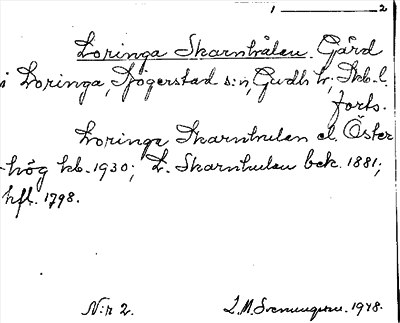 1 ——— 2
Loringa Skarnhålan. Gård
i Loringa, Sjögerstad s:n, Gudh. hr; Skb. l.
forts.
Loringa Skarnhulan el. Öster-
hög kb. 1930; L. Skarnhulan bek. 1881;
hfl. 1798.
N:r 2. L.M. Svenungsson. 1948.